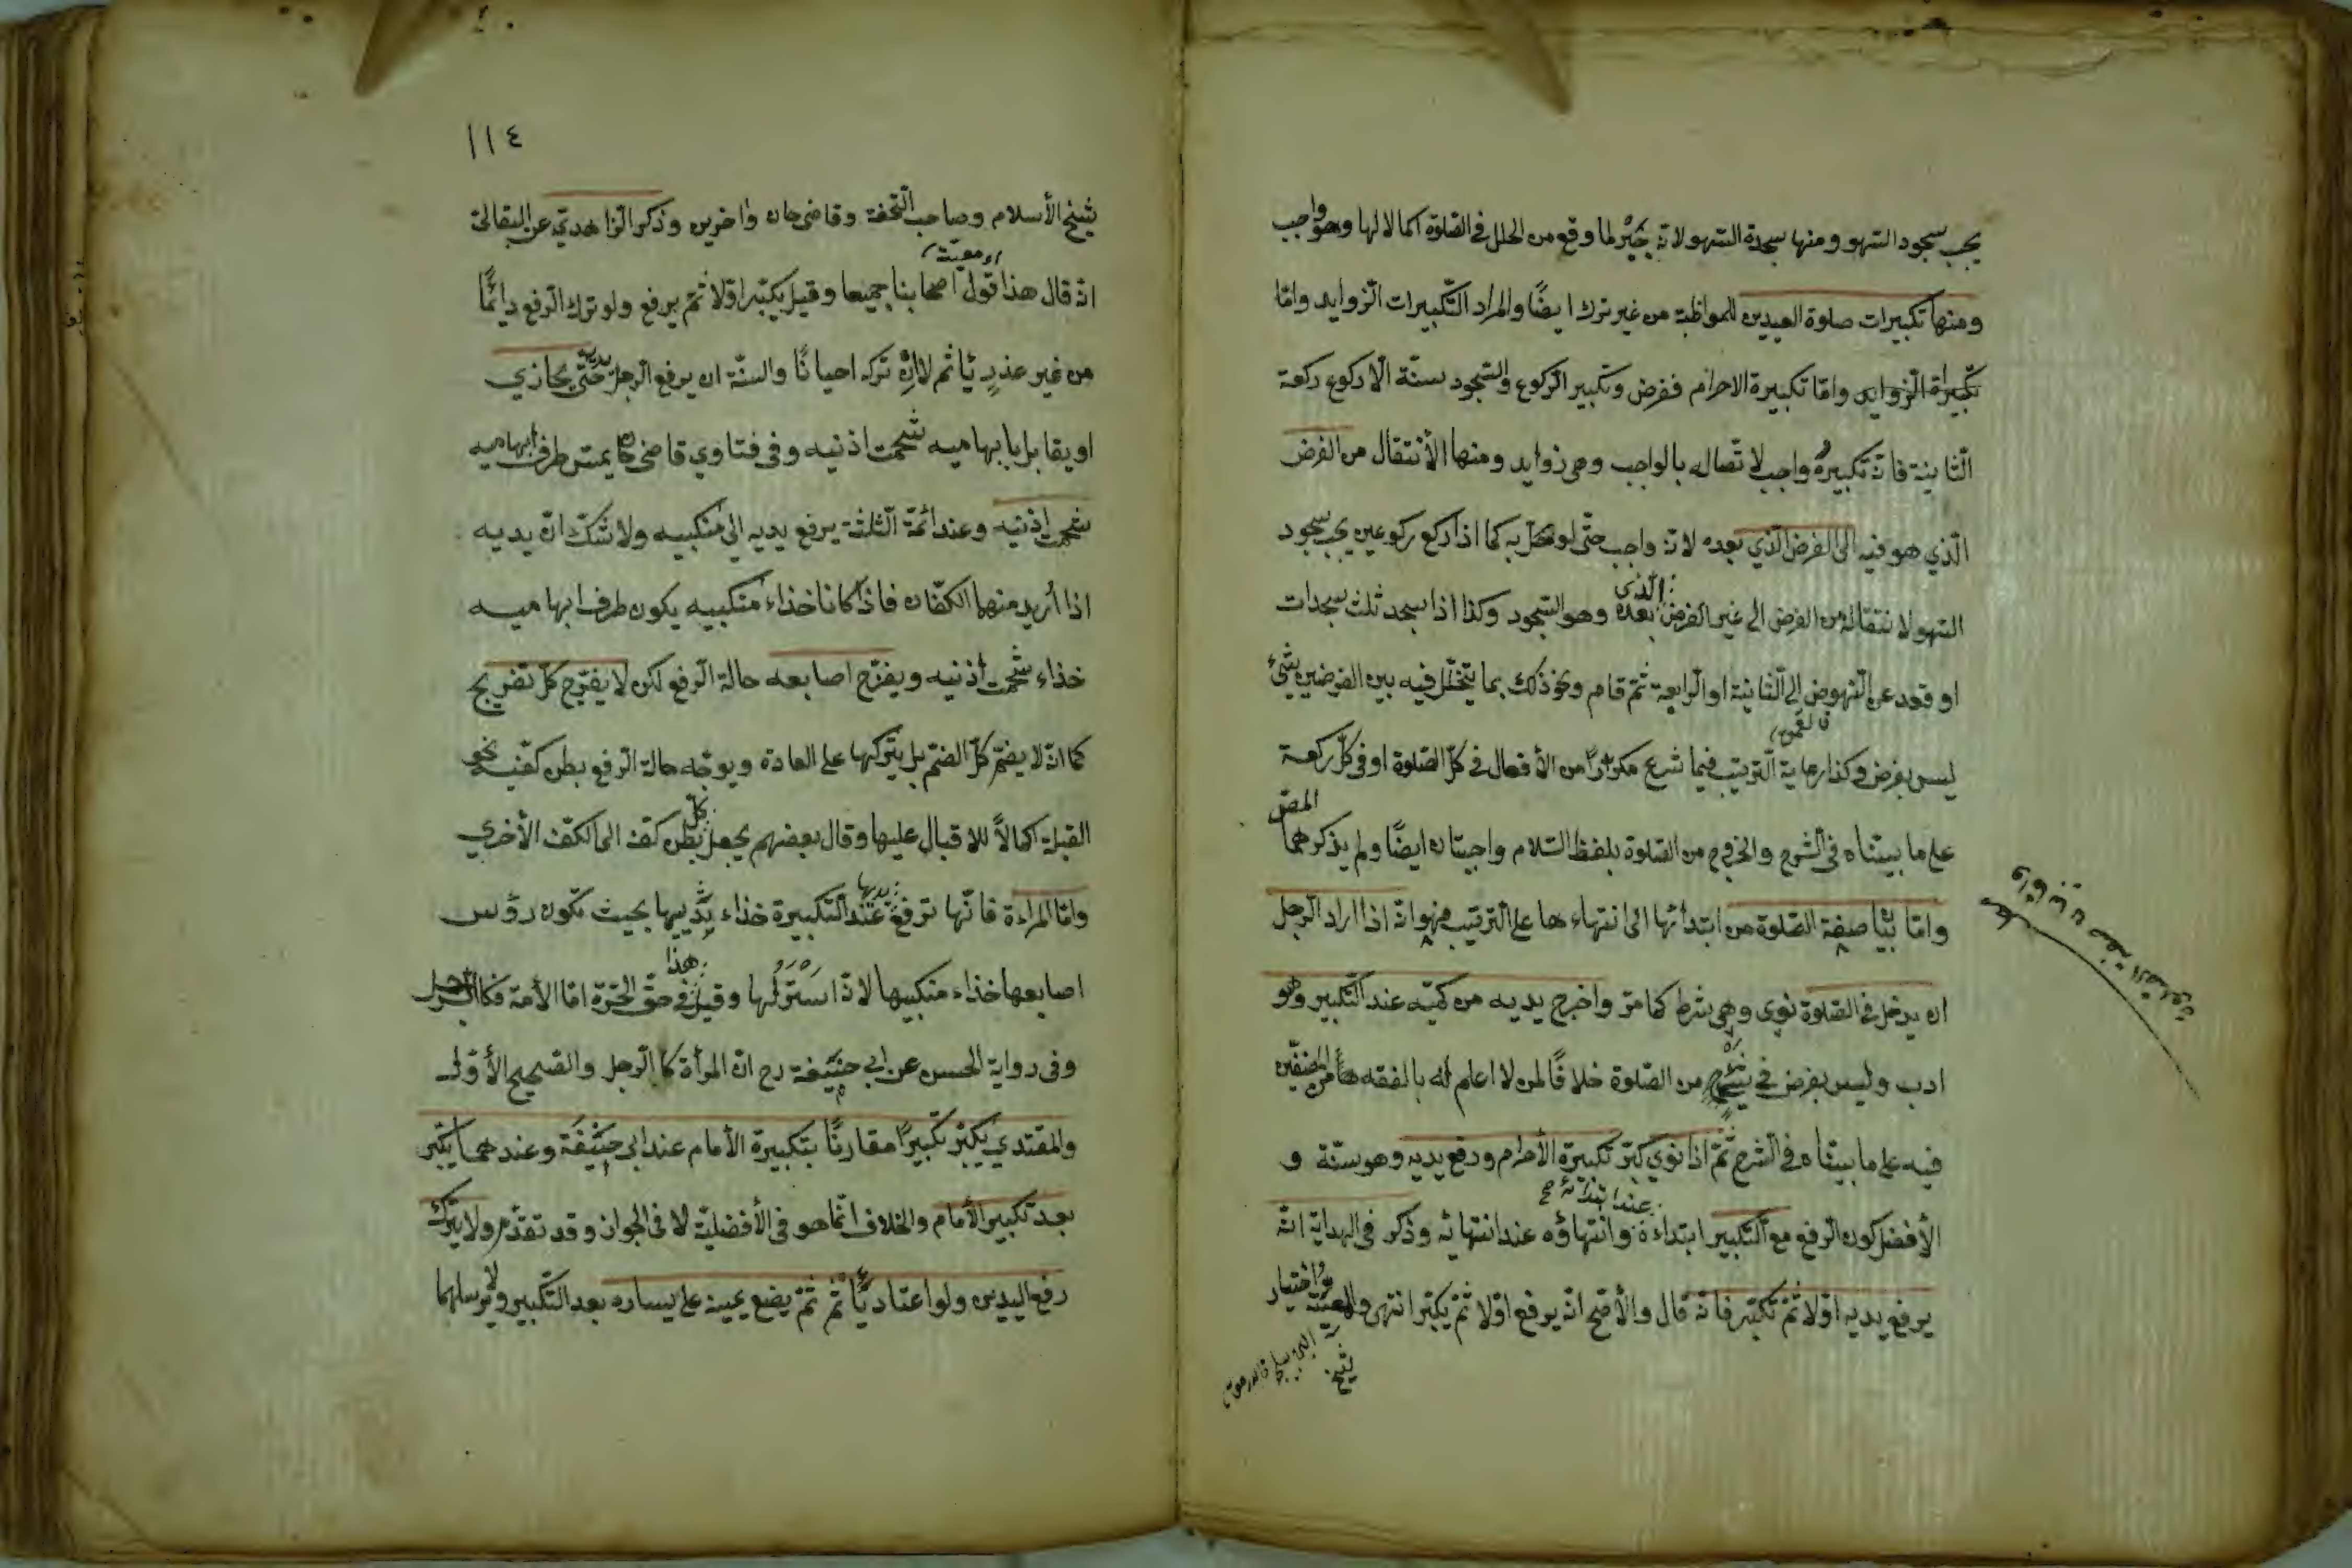 يجب سجود السهو ومنها سجدة السهو لانّه جَبْر لما وقع من الخلل في الصّلوة اكمالا لها وهو واجب
ومنها تكبيرات صلوة العيدين للمواظبة من غير ترك ايضًا والمراد التّكبيرات الزّوايد وامّا
تكبيراة الزّوايد وامّا تكبيرة الاحرام ففرض وتكبير الرّكوع والسّجود سنّة الّا ركوع ركعة
الثّانية فانّ تكبيرهُ واجب لاتّصاله بالواجب وهي زوايد ومنها الأنتقال من الفرض
الّذي هو فيه الى الفرض الّذي بعده لانّه واجب حتّى لو اخلّ به كما اذا ركع ركوعين يجب سجود
السّهو لانتقاله من الفرض الى غير الفرض الّذي بعده وهو السّجود وكذا اذا سجد ثلث سجدات
او قعد عن النّهوض الى الثّانية او الرّابعة ثمّ قام ونحو ذلك بما يتخلّل فيه بين الفرضين شئ
ليس بفرض وكذا رعاية التّرتيب فيما شرع مكرّرًا من الأفعال في كلّ الصّلوة او في كلّ ركعة
على ما بيّنّاه في الشّرح والخروج من الصّلوة بلفظ السّلام واجبتان ايضًا ولم يذكرهما المصّ
وامّا بيان صفة الصّلوة من ابتدائها الى انتهاءها على التّرتيب فهو انّه اذا اراد الرّجل
ان يدخل في الصّلوة نوى وهي شرط كما مرّ واخرج يديه من كمّيه عند التّكبير وهو
ادب وليس بفرض في من الصّلوة خلافًا لمن لا اعلم له بالفقه من المصنّفين
فيه على ما بيّنّاه في الشّرح ثمّ اذا نوى كبّر تكبيرة الأحرام ورفع يديه وهو سنّة و
الأفضل كون الرّفع مع التّكبير ابتداءه عند ابتدائه صح وانتهاؤه عند انتهائه وذكر في الهداية انّه
يرفع يديه اوّلا ثمّ تكبّر فانّه قال والأصحّ انّه يرفع اوّلا ثمّ يكبّر انتهى والمعيّة واختيار
شيخ
١١٤
شيخ الأسلام وصاحب التّحفة وقاضي خان واخرين وذكر الزّاهدي عن البقالي
انّه قال هذا قول اصحابنا جميعا وقيل يكبّر اوّلا ثمّ يرفع ولو ترك الرّفع دائمًا
من غير عذرٍ يأثم لا إنْ تركه احيانًا والسنّة ان يرفع الرّجل يديه حتّى يحاذي
او يقابل بابهاميه شحمت اذنيه وفي فتاوي قاضي خان يمسّ طرف ابهاميه
شحمت اذنيه وعند ائمّة الثّلثة يرفع يديه الى منكبيه ولا شكّ انّ يديه
اذا أريد منهما الكفّان فاذا كانا خذاء منكبيه يكون طرف ابهاميه
خذاء شحمت أذنيه ويفرّج اصابعه حالة الرّفع لكن لا يفرّج كلّ تفريج
كما انّه لا يضمّ كلّ الضّمّ بل يتركها على العادة ويوجّه حالة الرّفع بطن كفّيه نحو
القبلة اكمالًا للاقبال عليها وقال بعضهم يجعل بطن كلّ كفّ الى الكفّ الأخري
وامّا المراءة فانّها ترفع يديها عند التّكبيرة خذاء ثدييها بحيث تكون رؤس
اصابعها خذاء منكبيها لانّه اَسْتَرُ لها وقيل هذا في حقّ الحرّة امّا الأمة فكالرّجل
وفي رواية الحسن عن ابي حنيفة رح انّ المرأة كالرّجل والصّحيح الأوّل
والمقتدي يكبّر تكبيرًا مقارنًا بتكبيرة الأمام عند ابي حنيفة وعندهما يكبّر
بعد تكبير الأمام والخلاف انّما هو في الأفضليّة لا في الجواز وقد تقدّم ولا يترك
رفع اليدين ولو اعتاد يأثم ثمّ يضع يمينه على يساره بعد التّكبير ولا يرسلهما